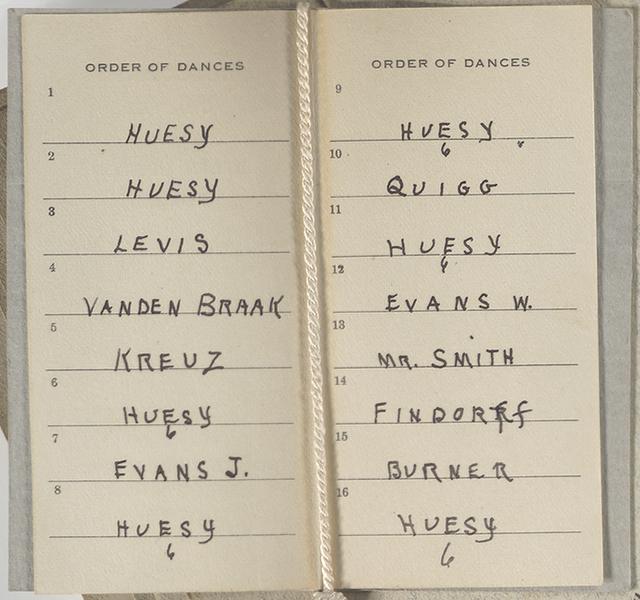 ORDER OF DANCES
1
HUESY
2
HUESY
3
LEVIS
4
VANDEN BRAAK
5
KREUZ
6
HUESY
6
7
EVANS J.
8
HUESY
6
ORDER OF DANCES
9
HUESY
6
10
QUIGG
11
HUESY
6
12
EVANS W.
13
MR. SMITH
14
FINDORFF
15
BURNER
16
HUESY
6